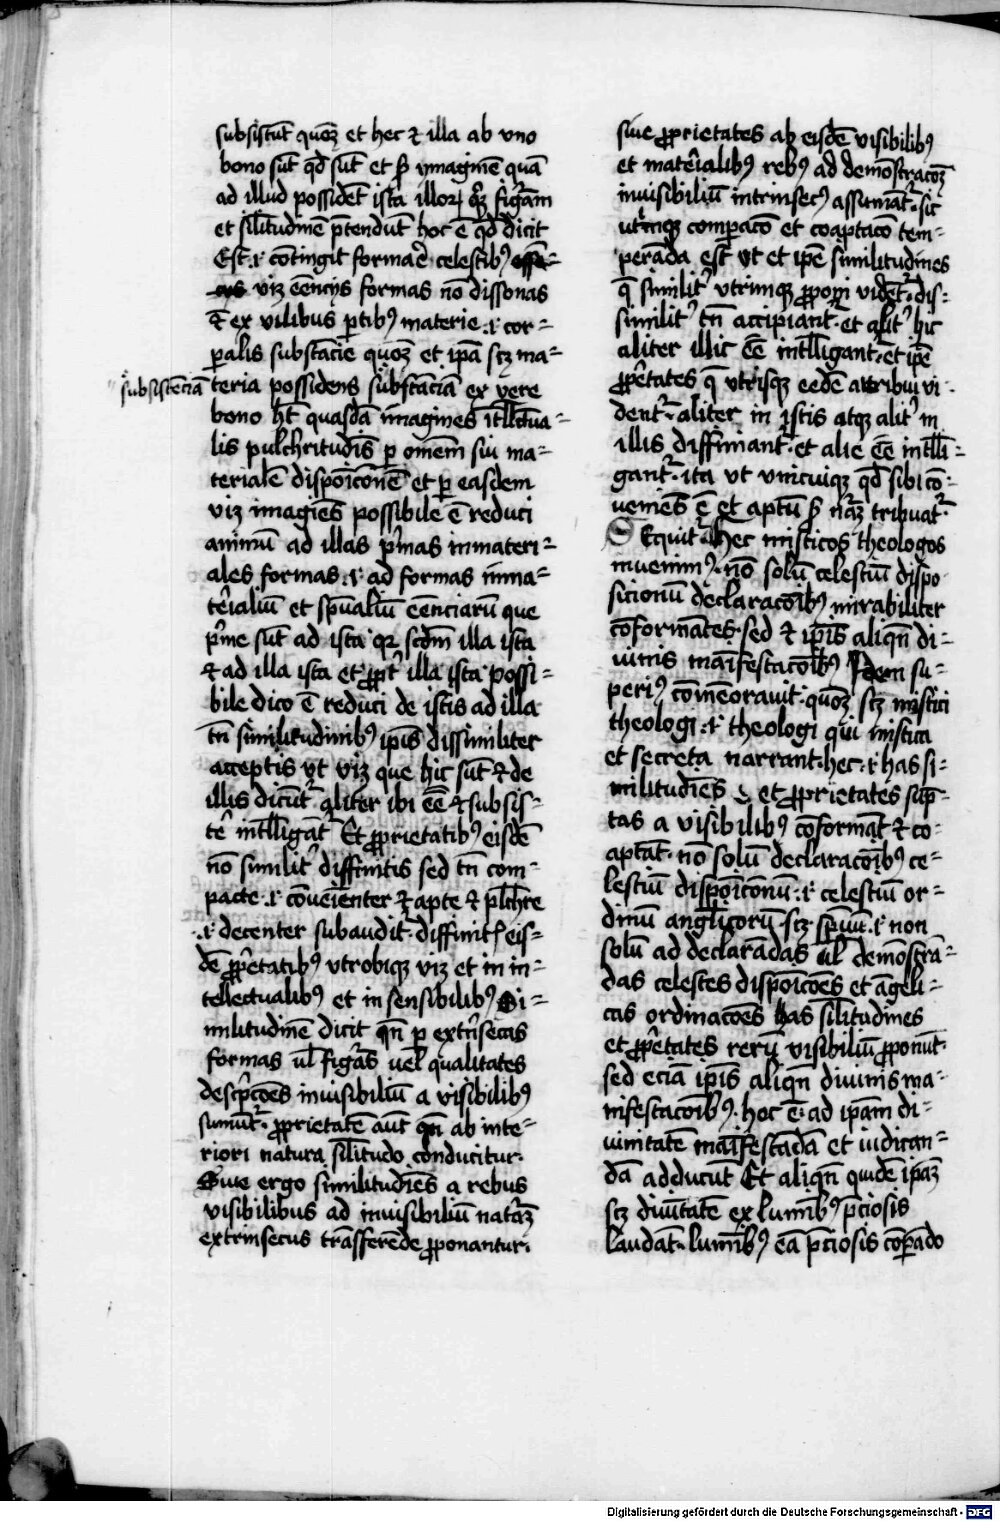 subsistūt quoꝫ et hec ⁊ illa ab vno
bono sūt qd̄ sūt et ymaginē quā
ad illud possidēt ista illoꝝ figͬam
et silitudinē p̄tendūt hoc ē qd̄ dicit
Est .i. cōtingit formare celestibꝰ
viz eēncijs formas nō dissonas
⁊ ex vilibus ꝑtibꝰ materie .i. cor-
ꝑalis substācie quoꝫ et ip̄a scꝫ ma-
subsistēciā
teria possidens substāciā ex vere
bono ht̄ quasdā imagines ītll̄cua-
lis pulchritudīs ꝑ omēm sui ma-
terialē disposicōnē et ꝑ easdem
viz imagiēs possibile ē reduci
animū ad illas pͥmas inmateri-
ales formas .i. ad formas imma-
teͬialiū et spūaliū eēnciarū que
pͥme sūt ad ista qꝛ scdm illa ista
⁊ ad illa ista et ꝓpt̄ illa ista possi-
bile dico ē reduci de istis ad illa
tn̄ similitudinibꝰ ip̄is dissimiliter
acceptis vt viz que hic sūt ⁊ de
illis dicūtͬ aliter ibi eē ⁊ subsis-
te intll̄igātͬ Et ꝓprietatibꝰ eisdē
nō similitͬ diffinitis sed tn̄ com-
pacte .i. cōueniēter ⁊ apte ⁊ plchre
.i. decenter subauditͬ diffinitͥ eis-
dē ꝓpͥetatibꝰ vtrobiqꝫ viz et in in-
tellectualibꝰ et in sensibilibꝰ Si-
militudinē dicit qn̄ ꝑ extrīsecas
formas ul̄ figͬas uel qualitates
descͥpcōes inuisibiliū a visibilibꝰ
sumūtͬ ꝓprietatē aūt qn̄ ab inte-
riori natura sil̄itudo conducitur.
Siue ergo similitudiēs a rebus
visibilibus ad inuisibiliū natͬaꝫ
extrinsecus trāsferēde ꝓponantur.
siue ꝓprietates ab eisdē visibilibꝰ
et mateͬialibꝰ rebꝰ ad demōstracōꝫ
inuisibiliū intrinsecꝰ assumātͬ sic
utrīqꝫ comꝑacō et coaptacō tem-
perāda est vt et ip̄e similitudines
q̄ similitͬ vtrimqꝫ ꝓponi vidētͬ dis-
similitͬ tn̄ accipiantͬ et alitͬ hic
aliter illic eē intll̄igantͬ et ip̄e
ꝓpͥetates q̄ vtrisqꝫ eedē attribui vi-
dentͬ aliter in istis atqꝫ alitͬ in
illis diffiniantͬ et alie eē intll̄i-
gantͬ ita vt vnicuiqꝫ qd̄ sibi cō-
ueniēs ē et aptū naͬꝫ tribuatͬ
Sequitͬ Hec misticos theologos
inuenimꝰ nō solū celestiū dispo
sicionū declaracōibꝰ mirabiliter
cōformātes sed ⁊ ip̄is aliqn̄ di-
uinis maīfestacōibꝰ Idem su-
periꝰ cōmēorauit quoꝫ scꝫ mistici
theologi .i. theologi qui mistica
et secreta narrant hec .i. has si-
militudiēs et ꝓprietates sup̄-
tas a visibilibꝰ cōformāt ⁊ co-
aptāt nō solū declaracōibꝰ ce-
lestiū disposicōnū .i. celestiū or-
dinū angl̄icorū scꝫ spūm .i. non
solū ad declarādas ul̄ demōstrā-
das celestes disposicōes et āgeli-
cas ordinacōes has sil̄itudines
et ꝓpͥetates rerū visibiliū ꝓponūt
sed eciā ip̄is aliqn̄ diuinis ma-
nifestacōibꝰ hoc ē ad ipam di-
uinitatē maīfestādā et iudican-
dā adducūt Et aliqn̄ quidē ipaꝫ
scꝫ diuītatē ex lumībꝰ p̄ciosis
laudāt lumībꝰ eā p̄ciosis cōꝑādo
Digitalisierung gefördert durch die Deutsche Forschungsgemeinschaft - DFG